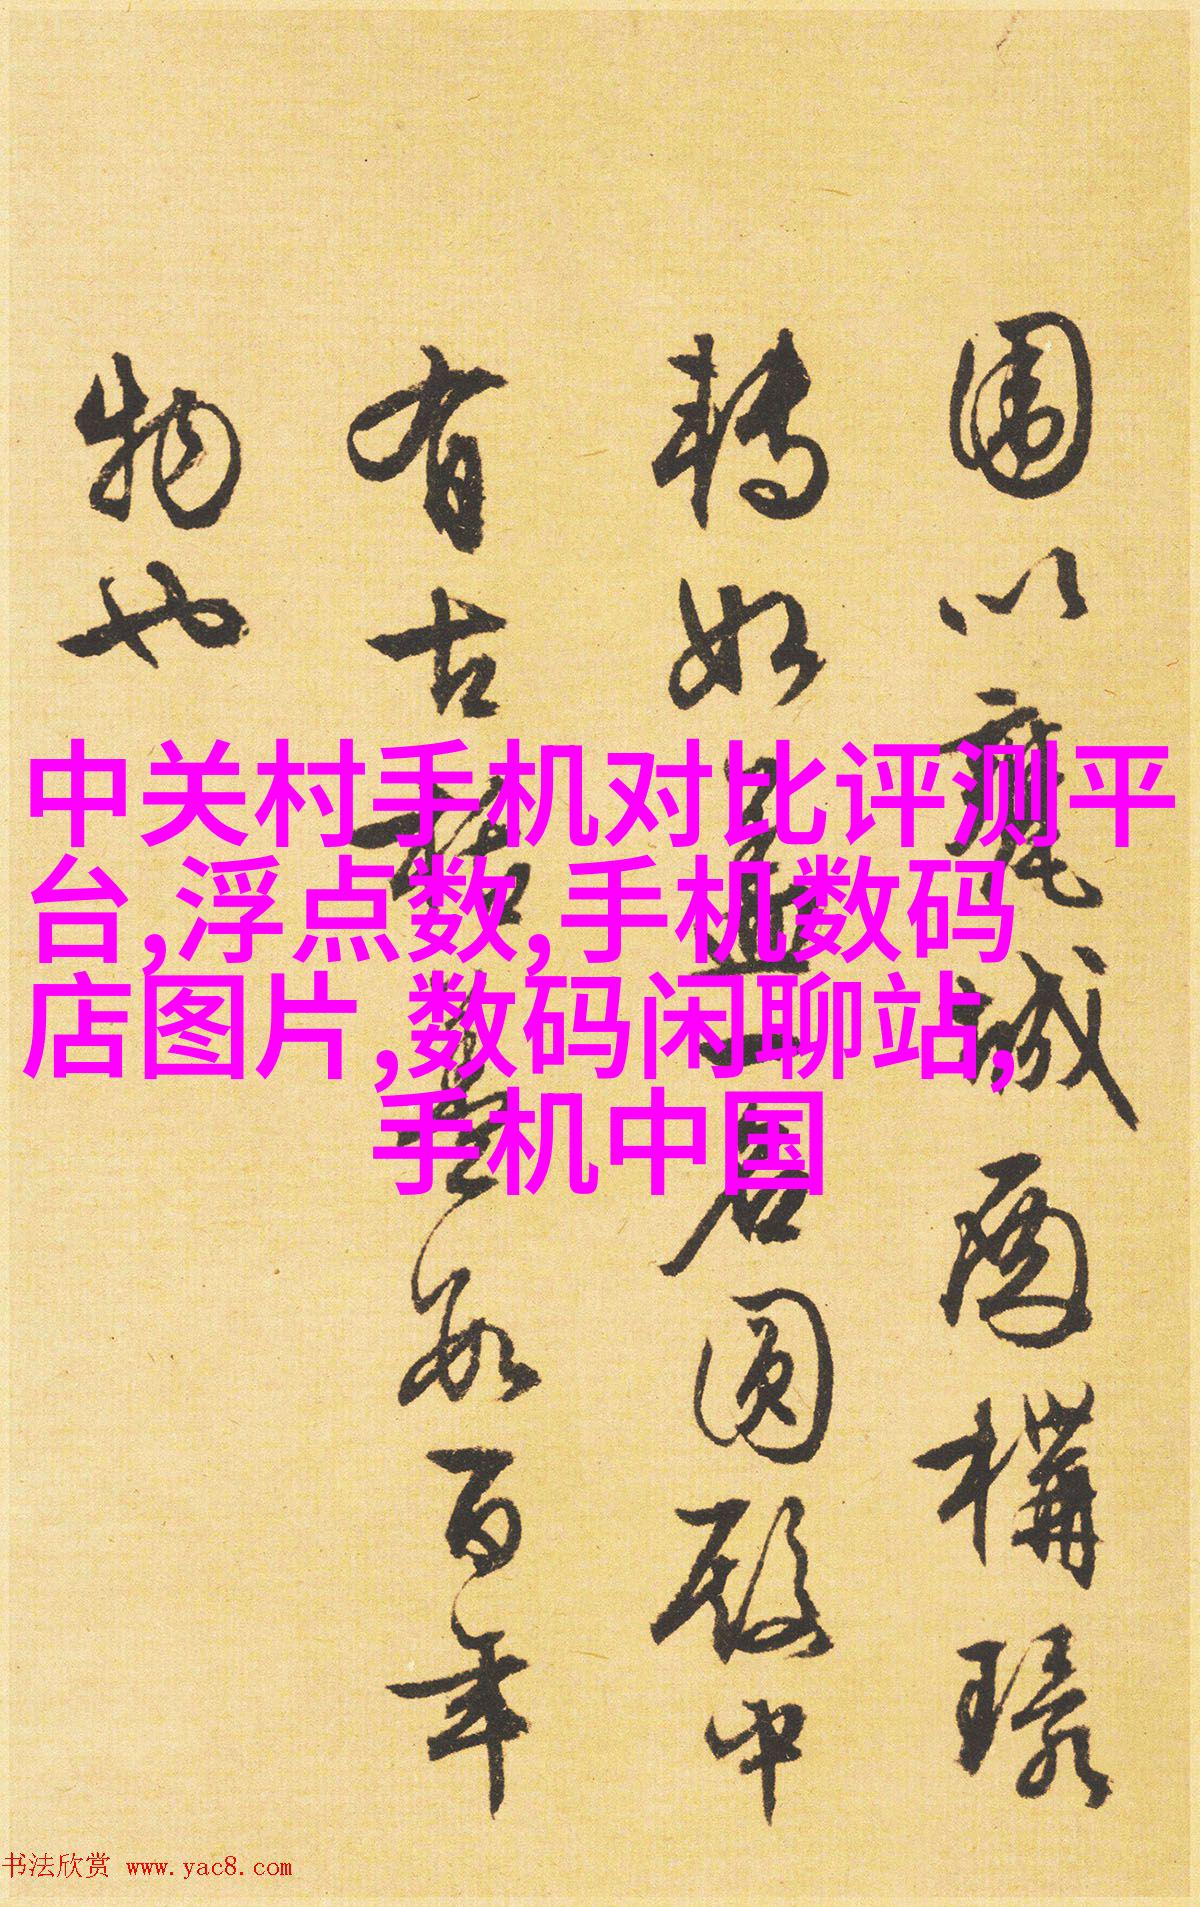 中关村手机对比评测平
台,浮点数,手机数码
店图片,数码闲聊站,
手机中国
圍以誠構
轉如圓殿中
有古蓋數百年
物也
书法欣赏 www.yac8.com